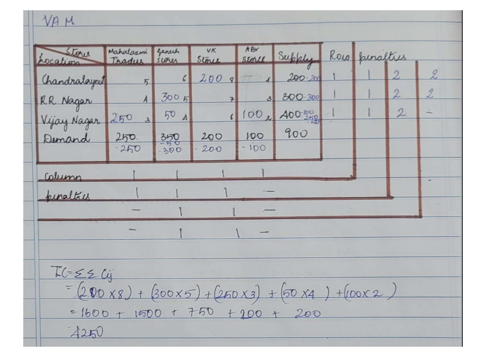 VAM
Stores Mahalaxmi Ganesh VK ABV Supply Row penalties
Location Traders Stores Stores Stores
Chandralayout 5 6 200 8 200-200 1 1 2 2
R.R. Nagar 4 300 5 7 3 300-300 1 1 2 2
Vijay Nagar 250 3 50 4 6 100 2 400 1 1 2 -
Demand 250 350 200 100 900
-250 -300 -200 -100
Column 1 1 1 1
penalties 1 1 1 -
- 1 1 -
- 1 1 -
TC= ΣΣ Cij
=(200×8) + (300×5) +(250×3) +(50×4) +(100×2)
=1600 + 1500 + 750 + 200 + 200
=4250